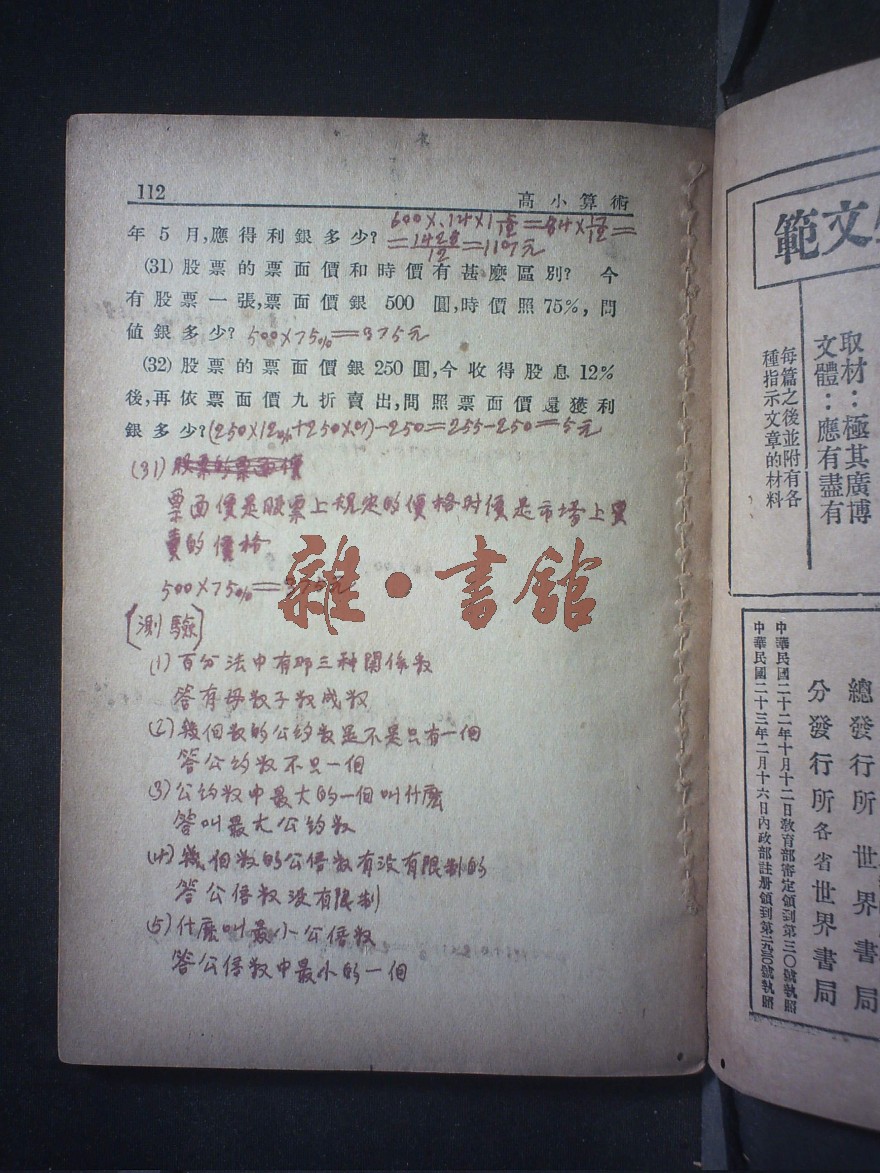 112
高小算術
年5月,應得利銀多少? 600×.14×1 5/12=84×17/12=
=1428/12=119元
(31) 股票的票面價和時價有甚麽區別? 今
有股票一張,票面價銀 500 圓,時價照 75%, 問
値銀多少? 500×75%=375元
(32) 股票的票面價銀250圓,今收得股息12%
後,再依票面價九折賣出,問照票面價還獲利
銀多少? (250×12%+250×0.9)-250=255-250=5元
(31) 股票的票面價
票面價是股票上規定的價格时價是市場上買
賣的價格
500×75%=375元
雜·書館
[測驗]
(1) 百分法中有那三种関係数
答有母数子数成数
(2) 幾個数的公約数是不是只有一個
答公約数不只一個
(3) 公約数中最大的一個叫什麽
答叫最大公約数
(4) 幾個数的公倍数有没有限制的
答公倍数没有限制
(5) 什麽叫最小公倍数
答公倍数中最小的一個
文範
取材:極其廣博
文體:應有盡有
每篇之後並附有各
種指示文章的材料
總發行所 世界書局
分發行所 各省世界書局
中華民國二十二年十月十二日教育部審定領到第三〇號執照
中華民國二十三年二月十六日內政部註册領到第號執照